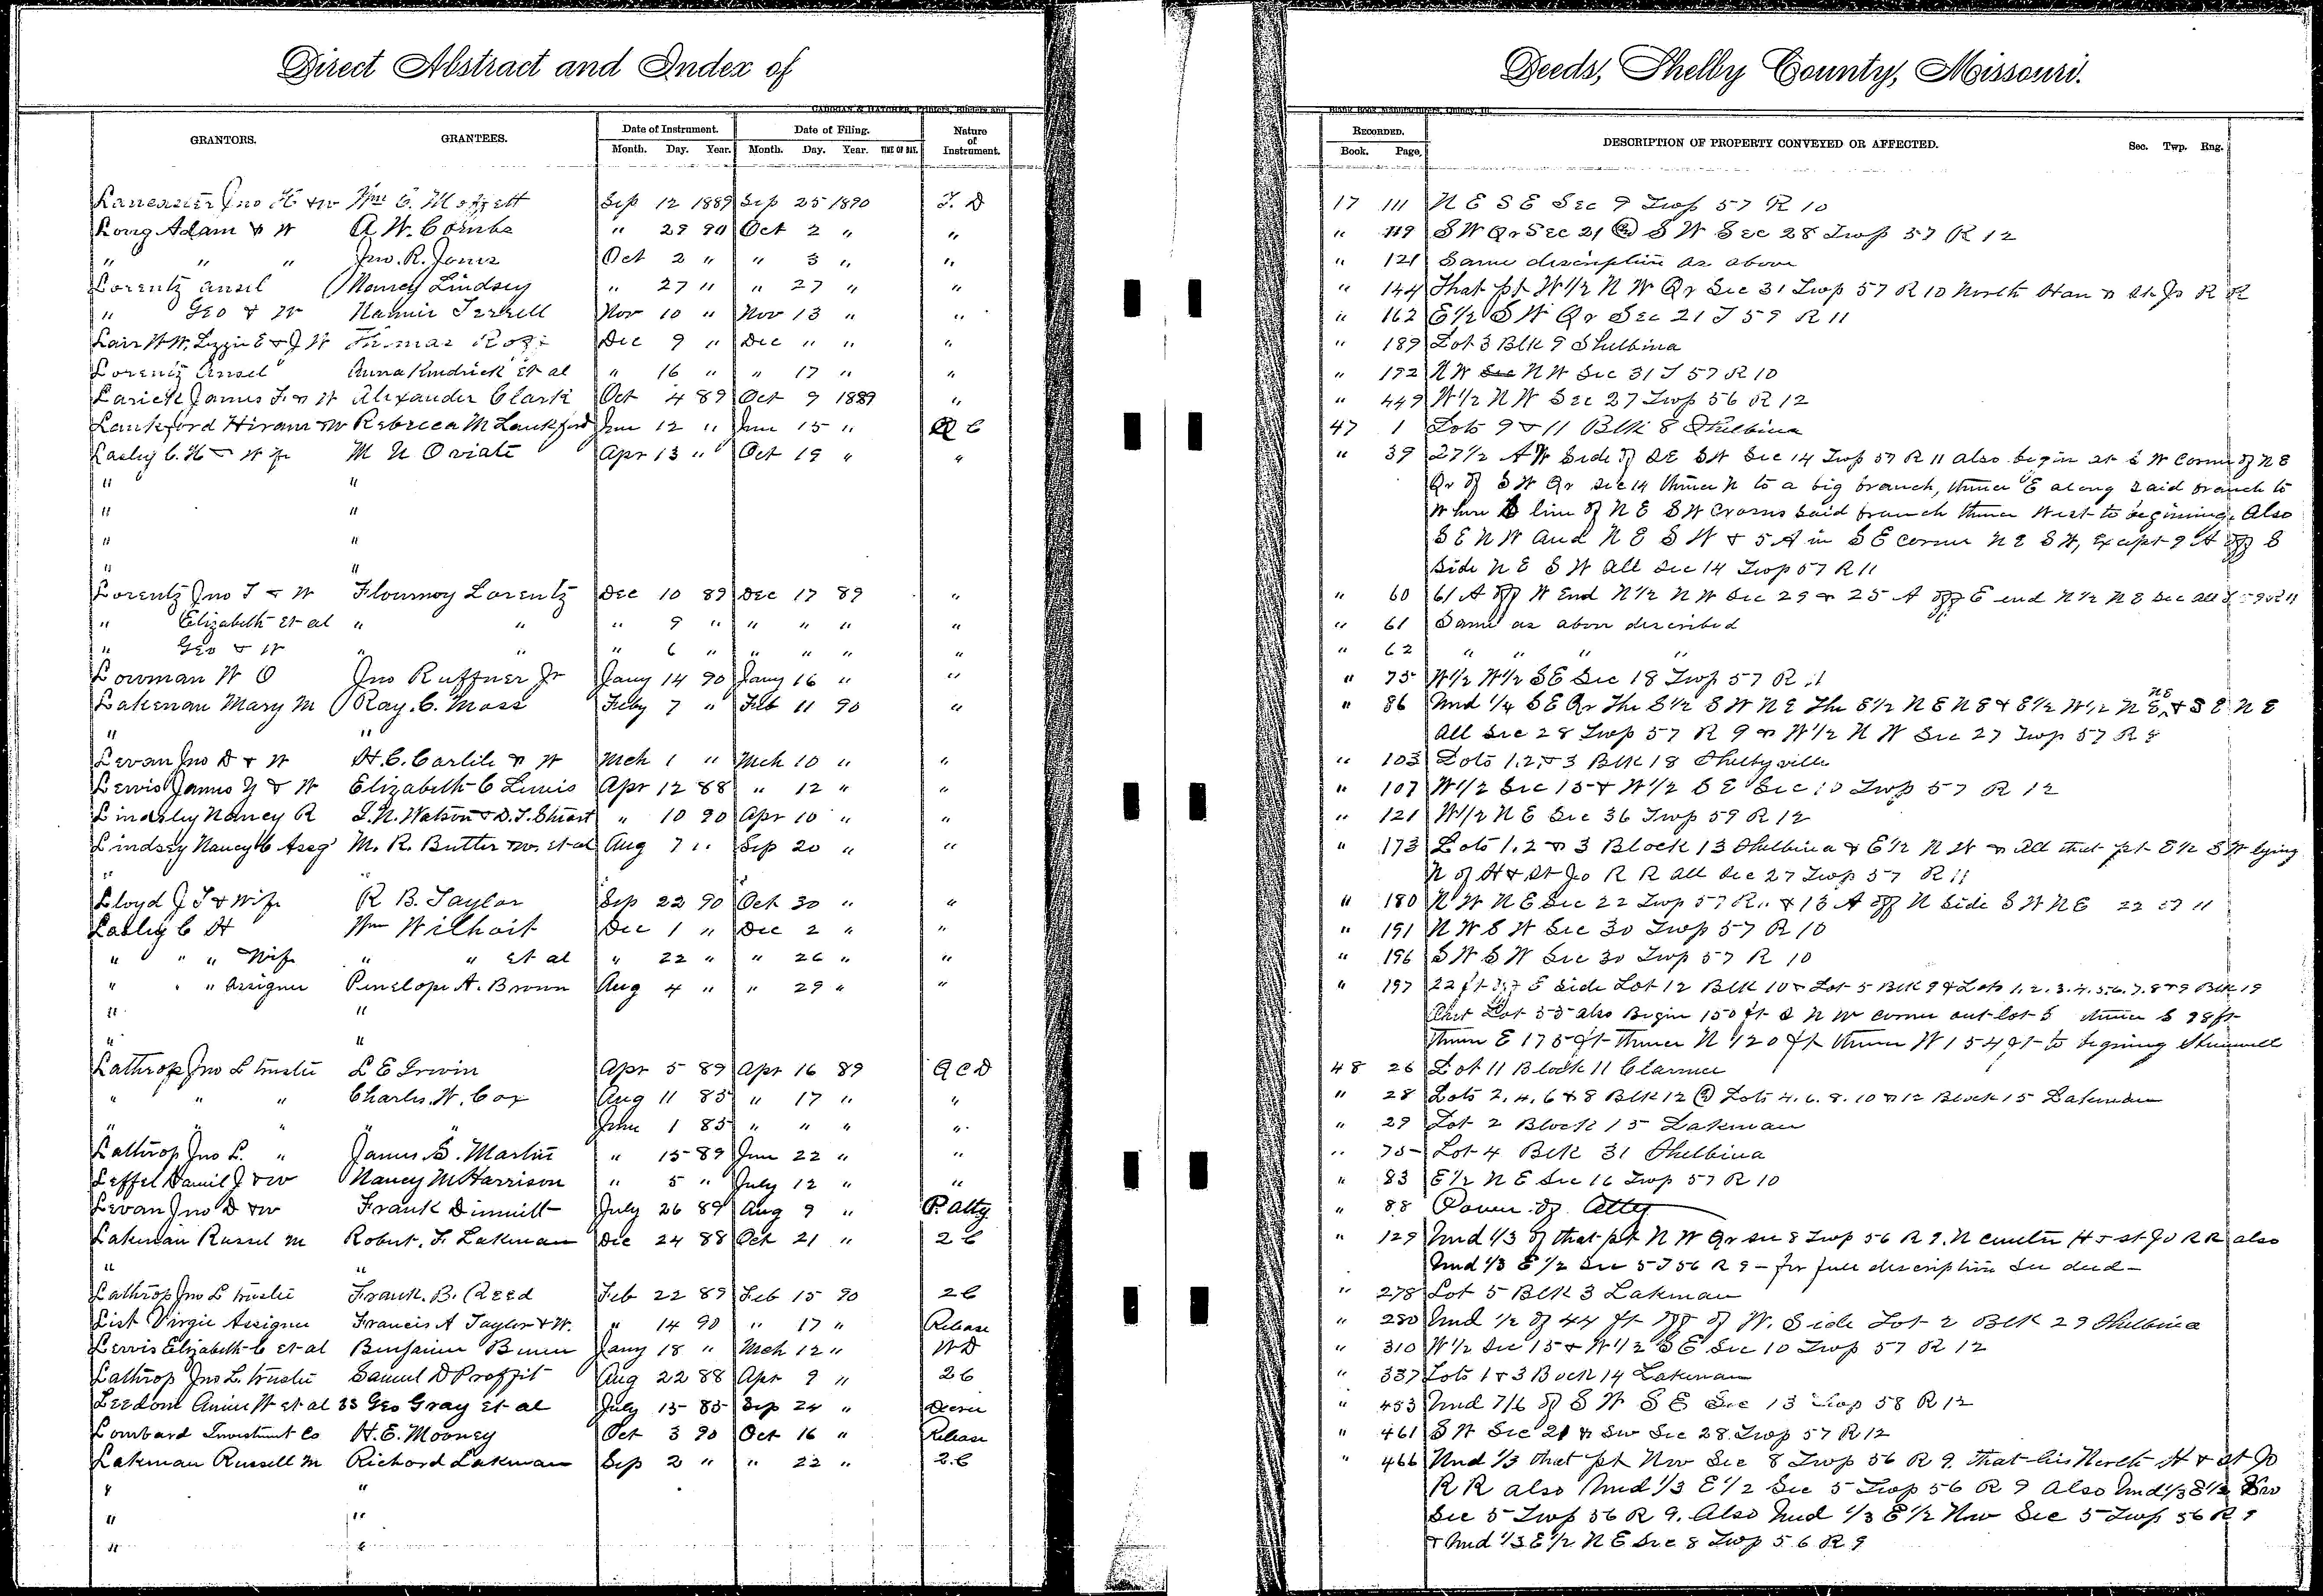 Direct Abstract and Index of Deeds, Shelby County, Missouri.
CADOGAN & HATCHER, Printers, Binders and Blank Book Manufacturers, Quincy, Ill.
GRANTORS. GRANTEES. Date of Instrument. Date of Filing. Nature of Instrument. RECORDED. DESCRIPTION OF PROPERTY CONVEYED OR AFFECTED. Sec. Twp. Rng.
Month. Day. Year. Month. Day. Year. TIME OF DAY. Book. Page.
Lancaster Jno H & W Wm C. Moffett Sep 12 1889 Sep 25 1890 T. D 17 111 N E S E Sec 9 Twp 57 R 10
Long Adam & W A. W. Combs " 29 90 Oct 2 " " " 119 S W Qr Sec 21 & S W Sec 28 Twp 57 R 12
" " " Jno. R. Jones Oct 2 " " 3 " " " 121 Same description as above
Lorentz Ansel Nancy Lindsey " 27 " " 27 " " " 144 That pt W 1/2 N W Qr Sec 31 Twp 57 R 10 North Han & St. Jo R R
" Geo & W Nannie Terrell Nov 10 " Nov 13 " " " 162 E 1/2 S W Qr Sec 21 T 59 R 11
Lair W W, Lizzie E & J W Thomas Dec 9 " Dec " " " " 189 Lot 3 Blk 9 Shelbina
Lorentz Ansel Anna Kendrick et al " 16 " " 17 " " " 192 N W Sec N W Sec 31 T 57 R 10
Larick James F. & W Alexander Clark Oct 4 89 Oct 9 1889 " " 449 W 1/2 N W Sec 27 Twp 56 R 12
Lankford Hiram & W Rebecca M Lankford Jun 12 " Jun 15 " Q C 47 1 Lots 9 & 11 Blk 8 Shelbina
Lasley C. H & Wife M N Oviatt Apr 13 " Oct 19 " " " 39 27 1/2 A W Side of S E S W Sec 14 Twp 57 R 11 also begin at S W Corner of N E
" " Qr of S W Qr Sec 14 thence N to a big branch, thence E along said branch to
" " Where S line of N E S W Crosses said branch thence West to begining. Also
" " S E N W and N E S W & 5 A in S E Corner N E S W, Except 9 A off S
" " Side N E S W all Sec 14 Twp 57 R 11
Lorentz Jno T & W Flournoy Lorentz Dec 10 89 Dec 17 89 " " 60 61 A off W End N 1/2 N W Sec 29 & 25 A off E end N 1/2 N E Sec all T 59 R 11
" Elizabeth et al " " " 9 " " " " " " 61 Same as above described
" Geo & W " " " 6 " " " " " " 62 " " " "
Lowman W O Jno Ruffner Jr Jany 14 90 Jany 16 " " " 75 W 1/2 W 1/2 S E Sec 18 Twp 57 R 11
Lakenan Mary M Ray. C. Moss Feby 7 " Feb 11 90 " " 86 Und 1/4 S E Qr The S 1/2 S W N E The E 1/2 N E N E & E 1/2 W 1/2 N E N E & S E N E
" " All Sec 28 Twp 57 R 9 & W 1/2 N W Sec 27 Twp 57 R 9
Levan Jno D & W H. C. Carlile & W Mch 1 " Mch 10 " " " 103 Lots 1, 2, & 3 Blk 18 Shelbyville
Lewis James Y & W Elizabeth C Lewis Apr 12 88 " 12 " " " 107 W 1/2 Sec 15 & W 1/2 S E Sec 10 Twp 57 R 12
Lindsley Nancy R T. N. Watson & D. T. Stuart " 10 90 Apr 10 " " " 121 W 1/2 N E Sec 36 Twp 59 R 12
Lindsey Nancy C Assg M. R. Butler & W. et al Aug 7 " Sep 20 " " " 173 Lots 1, 2 & 3 Block 13 Shelbina & E 1/2 N W & All that pt E 1/2 S W lying
" " N of H & St Jo R R all Sec 27 Twp 57 R 11
Lloyd J T & Wife R B. Taylor Sep 22 90 Oct 30 " " " 180 N W N E Sec 22 Twp 57 R 11 & 13 A off N Side S W N E 22 57 11
Lasley C H Wm Wilhoit Dec 1 " Dec 2 " " " 191 N W S W Sec 30 Twp 57 R 10
" " " Wife " " et al " 22 " " 26 " " " 196 S W S W Sec 30 Twp 57 R 10
" " " Assignee Penelope A. Brown Aug 4 " " 29 " " " 197 22 ft off E Side Lot 12 Blk 10 & Lot 5 Blk 9 & Lots 1. 2. 3. 4. 5. 6. 7. 8 & 9 Blk 19
" " Out Lot 55 also Begin 150 ft S N W corner out lot 5 thence S 98 ft
" " Thence E 175 ft thence N 120 ft thence W 154 ft to begining
Lathrop Jno L trustee L E Irwin Apr 5 89 Apr 16 89 Q C D 48 26 Lot 11 Block 11 Clarence
" " " Charles. W. Cox Aug 11 85 " 17 " " " 28 Lots 2, 4, 6 & 8 Blk 12 & Lots 4. 6. 8. 10 & 12 Block 15 Lakenan
" " " " June 1 85 " " " " " 29 Lot 2 Block 15 Lakenan
Lathrop Jno L. " James S. Martin " 15 89 Jun 22 " " " 75 Lot 4 Blk 31 Shelbina
Leffel Daniel J & W Nancy M Harrison " 5 " July 12 " " " 83 E 1/2 N E Sec 16 Twp 57 R 10
Levan Jno D & W Frank Dimmitt July 26 89 Aug 9 " P. Atty " 88 Power of Atty
Lakenan Russel M Robert. F. Lakenan Dec 24 88 Oct 21 " 2 C " 129 Und 1/3 of that pt N W Qr Sec 8 Twp 56 R 9. N H & St Jo R R also
" " Und 1/3 E 1/2 Sec 5 T 56 R 9 - for full description See deed -
Lathrop Jno L trustee Frank. B. Reed Feb 22 89 Feb 15 90 2 C " 278 Lot 5 Blk 3 Lakenan
List Virgie Assignee Francis A Taylor & W. " 14 90 " 17 " Release " 280 Und 1/2 of 44 ft off of W. Side Lot 2 Blk 29 Shelbina
Lewis Elizabeth C et al Benjamin Jany 18 " Mch 12 " W D " 310 W 1/2 Sec 15 & W 1/2 S E Sec 10 Twp 57 R 12
Lathrop Jno L. trustee Samuel D Proffit Aug 22 88 Apr 9 " 2 C " 337 Lots 1 & 3 Block 14 Lakenan
Leedom Annie W et al vs Geo Gray et al July 15 85 Sep 24 " Decree " 453 Und 7/16 of S W S E Sec 13 Twp 58 R 12
Lombard Investment Co H. E. Mooney Oct 3 90 Oct 16 " Release " 461 S W Sec 21 & SW Sec 28 Twp 57 R 12
Lakenan Russell M Richard Lakenan Sep 2 " " 22 " 2. C " 466 Und 1/3 that pt NW Sec 8 Twp 56 R 9. that lies North H & St Jo
" " R R also Und 1/3 E 1/2 Sec 5 Twp 56 R 9 Also Und 1/3 E 1/2 SW
" " Sec 5 Twp 56 R 9. Also Und 1/3 E 1/2 NW Sec 5 Twp 56 R 9
" " & Und 1/3 E 1/2 N E Sec 8 Twp 56 R 9